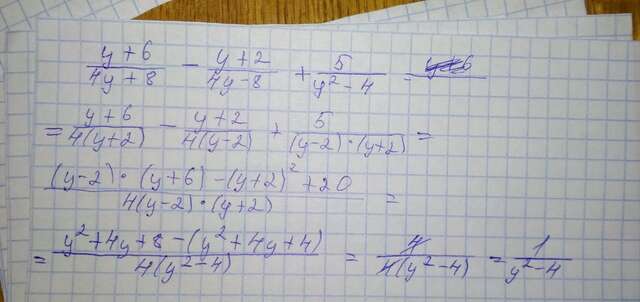 (y + 6)/(4y + 8) − (y + 2)/(4y − 8) + 5/(y² − 4) =
= (y + 6)/(4(y + 2)) − (y + 2)/(4(y − 2)) + 5/((y − 2) · (y + 2)) =
((y − 2) · (y + 6) − (y + 2)² + 20)/(4(y − 2) · (y + 2)) =
= (y² + 4y + 8 − (y² + 4y + 4))/(4(y² − 4)) = 4/(4(y² − 4)) = 1/(y² − 4)